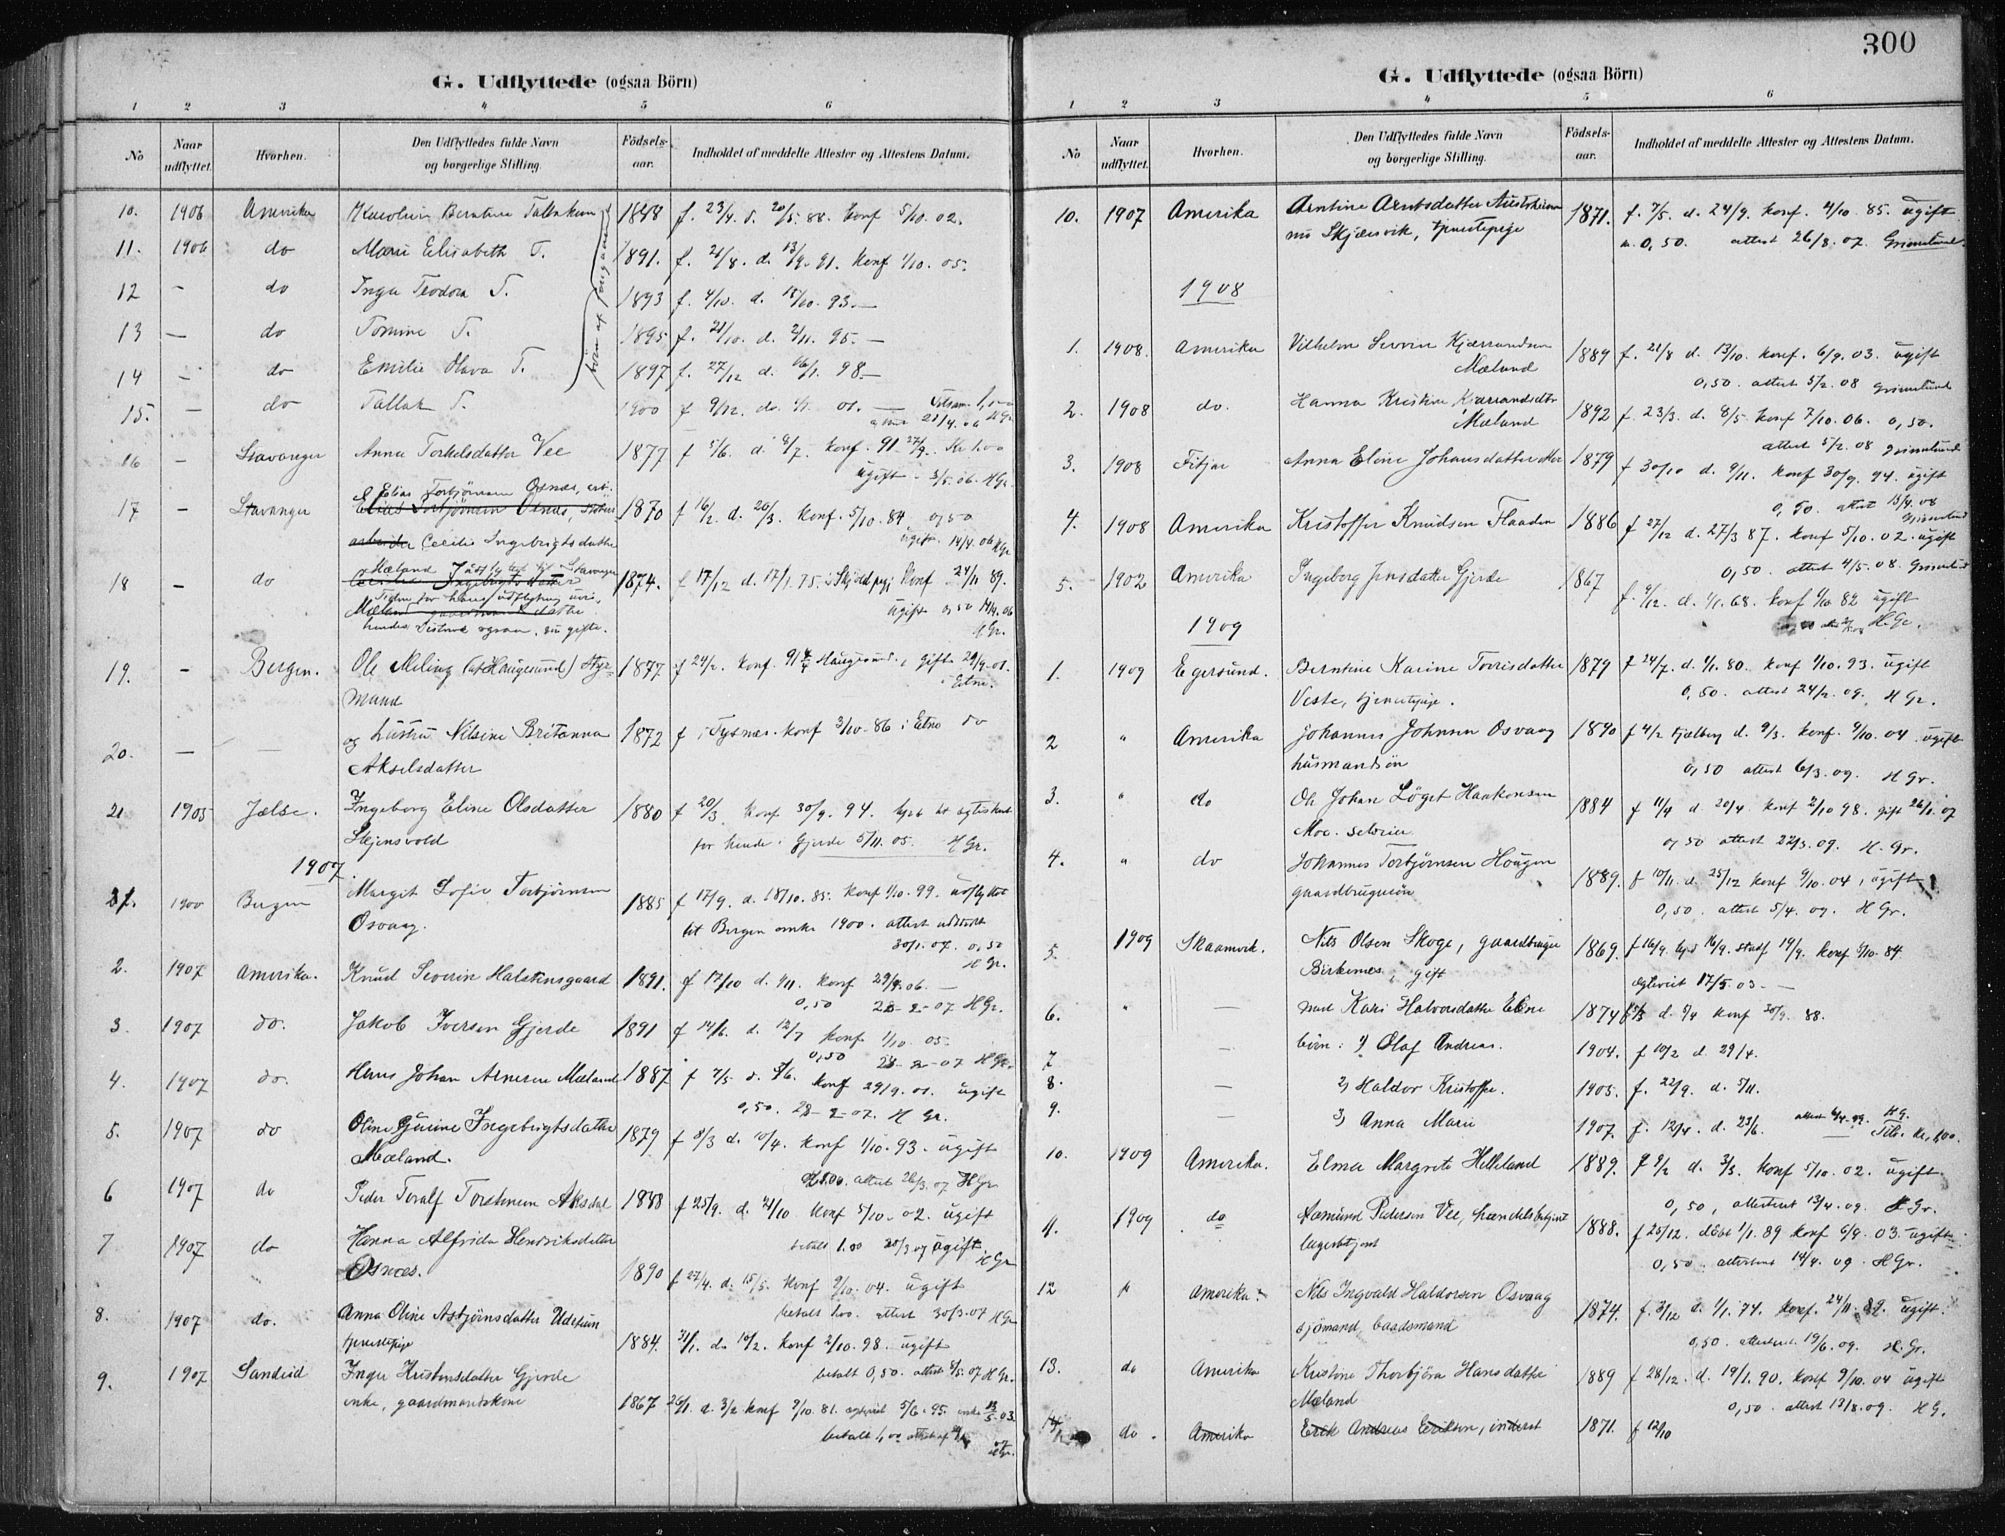 300
G. Udflyttede (ogsaa Börn)
1 2 3 4 5 6
No Naar udflyttet. Hvorhen. Den Udflyttedes fulde Navn og borgerlige Stilling. Födsels-aar. Indholdet af meddelte Attester og Attestens Datum.
10. 1906 Amerika Bertine Tallaksen 1888 f. 23/4. d. 20/5. 88. konf 5/10. 02.
11. 1906 do Marie Elisabeth T. 1891. f. 21/8. d. 13/9. 91. konf 1/10. 05.
12 - do Inga Teodora T. 1893 f. 4/10. d. 15/10. 93. —
13 — do Tomine T. 1895 f. 21/10. d. 2/11. 95. —
14 - do Emilie Olava T. 1897 f. 27/12 d. 16/1. 98. —
15. - do Tallak T. 1900 f 9/12. d. 1/1. 01. —
16 - Stavanger Anna Torkelsdatter Vee 1877 f 5/6. d. 8/7. konf. 91 27/9. Kr 1.00
ugift - 3/5. 06. H Gr.
Elias Torbjörnsen Osnes, arb.
17 - Stavanger Elias Torbjörnsen Osnes, 1870 f 16/2. d. 20/3. konf. 5/10. 84 0,50
arbeider Cecilie Ingebrigtsdatter ugift. 14/4. 06 H Gr.
18 - do Mæland 1874. f 17/12 d. 17/1. 75 i Skjold pgj konf 24/11 89.
ugift 0,50 14/4. 06
H Gr.
19. - Bergen. Ole Meling (at Haugesund) Styr- 1877 f 24/2. konf. 91 Haugesund. gift 29/9. 01.
mand i Etne.
20. — — og hustru Nilsine Britanna 1872 f i Tysnes. konf 3/10. 86 i Etne do
Akselsdatter
21 1905 Jælse. Ingeborg Eline Olsdatter 1880 f 20/3. konf 30/9. 94.
Stejnsvold for hende. Gjerde 5/11. 05. H Gr.
1907.
1. 1900 Bergen Margit Sofie Torbjörnsen 1885 f 17/9. d. 18/10. 85. konf 1/10. 99. udflyttet
Osvaag. til Bergen omkr 1900. attest udstedt
30/1. 07. 0,50
H Gr.
2. 1907 Amerika. Knud Severin Halstensgaard 1891. f 17/10 d. 1/11. konf 29/9. 06. —
0,50 28-2-07 H Gr.
3 1907 do. Jakob Iversen Gjerde 1891 f 14/6. d. 12/7 konf 1/10. 05.
0,50 28-2-07 H Gr.
4. 1907 do. Hans Johan Arnesen Mæland 1887 f 7/5 d. 5/6. konf 29/9. 01. ugift
0,50. 28-2-07. H Gr.
5. 1907 do Oline Gurine Ingebrigtsdatter 1879 f 8/3 d. 10/4. konf 1/10. 93. ugift
Mæland. attest 26/3. 07 H Gr
6 1907 do Peder Toralf Torstensen Aksdal 1888 f 25/9. d. 21/10 konf 5/10. 02. ugift
betalt 1.00 20/3 07 ugift H Gr
7 1907 do Hanna Alfrida Hendriksdatter
Osnæs. 1890 f 27/4. d. 15/5. konf 9/10. 04. ugift
betalt 1.00. attest 30/3. 07 H Gr
8. 1907 do. Anna Oline Asbjörnsdatter
tjenestepige 1884. 31/1. d. 10/2. konf 2/10. 98. ugift
betalt 0,50. attest 8/5. 07 H Gr.
9. 1907 Sandeid Inger Kristensdatter Gjerde
enke, gaardmandskone 1867 26/1. d. 3/2 konf 9/10. 81. 5/6. 95. enke 13/5. 03.
betalt 1,00
G. Udflyttede (ogsaa Börn)
1 2 3 4 5 6
No Naar udflyttet. Hvorhen. Den Udflyttedes fulde Navn og borgerlige Stilling. Födsels-aar. Indholdet af meddelte Attester og Attestens Datum.
10. 1907 Amerika Arntine Arntsdatter Austrheim 1871. f. 7/5. d. 24/9. konf. 4/10. 85. ugift
nu Skjærsvik, tjenestepige 0,50. attest 26/8. 07. Grimelund.
1908
1. 1908. Amerika Vilhelm Severin Kjærrandsen 1889 f. 21/8 d. 13/10. konf. 6/9. 03. ugift
Mæland 0,50. attest 5/2. 08 Grimelund
2. 1908 do. Hanna Kristine Kjærrandsdtr 1892 f. 23/3. d. 8/5. konf 7/10. 06. 0,50.
Mæland attest 5/2. 08 Grimelund
3. 1908 Fitjar Anna Eline Johansdatter Moe 1879 f 30/10 d. 9/11. konf 30/9. 94. ugift
0,50. attest 15/4. 08
Grimelund
4. 1908 Amerika Kristoffer Knudsen Flaaden 1886 f 27/12 d. 27/3 87. konf 5/10. 02. ugift
0,50. attest 4/5. 08. Grimelund
5. 1902 Amerika Ingeborg Jensdatter Gjerde 1867 f. 9/12. d. 1/1. 68. konf 1/10 82 ugift
H. Gr.
1909
1. 1909 Egersund. Berntine Karine Torrisdatter 1879 f 24/7. d. 1/1. 80. konf 1/10. 93. ugift
Veste, tjenestepige. 0,50. attest 24/2. 09. H Gr.
2 " Amerika Johannes Johnsen Osvaag 1890 f 4/2 Fjelberg d. 9/3. konf. 9/10. 04. ugift
husmandsön 0,50 attest 6/3. 09. H Gr.
3. " do Ole Johan Löget Haakonsen 1884 f 11/4 d. 20/4. konf 2/10 98. gift 26/1. 07
Moe. seloeier 0,50 attest 22/3. 09. H. Gr.
4. " do Johannes Torbjørnsen Hougen 1889. f 10/11. d. 25/12 konf 9/10. 04, ugift
gaardbrugersön 0,50. attest 5/4. 09. H Gr.
5. 1909 Skaanevik. Nils Olsen Skoge, gaardbruger 1869. f 16/9. hjd 16/9. stadf 19/9. konf 5/10. 84.
Birkenes, gift ægteviet 17/5. 03. —
6. " — med Kari Halvorsdatter Eline 1874 d. 9/4 konf 30/9. 88.
7 — börn: 1) Olaf Andreas. 1904. f 10/2 d. 29/4.
8. — 2) Haldor Kristoffer. 1905. f. 22/9. d. 5/11.
9. — 3) Anna Marie 1907. f. 12/4. d. 23/6. attest 6/4. 09. H G.
10. 1909 Amerika. Elma Margrete Helleland 1889. f 9/2 d. 3/3. konf 5/10. 02. ugift
0,50, attesteret 13/4. 09. H Gr.
11. 1909 do Aamund Pedersen Vee, handelsbetjent 1888. f 25/12. döbt 1/1. 89 konf 6/9. 03. ugift
lagerbetjent 0,50. attesteret 14/4. 09. H Gr.
12 " Amerika. Nils Ingvald Haldorsen Osvaag 1874. f. 3/12 d. 1/1. 74. konf. 24/11. 89. ugift.
sjömand, baadsmand 0,50. attesteret 19/6. 09. H. Gr.
13. do Amerika Kristine Thorbjöra Hansdatter 1889 f 28/12. d. 19/1. 90. konf 9/10. 04 ugift
Mæland 0,50. attest 13/8. 09. H G.
14 do. Amerika Erik Andreas Eriksen, inderst 1871. f 12/10